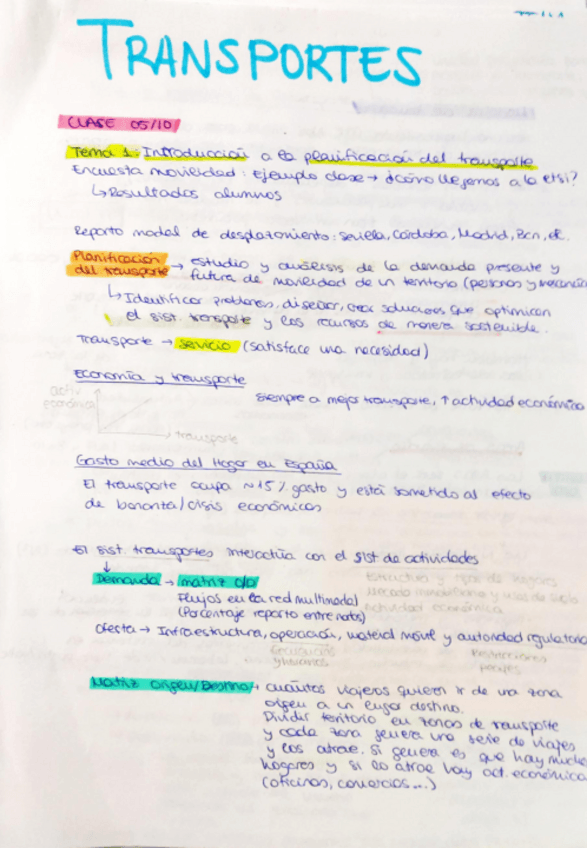 TRANSPORTES
CLASE 05/10
Tema 1: Introducción a la planificación del transporte
Encuesta movilidad: Ejemplo clase → ¿cómo llegamos a la etsi?
↳ Resultados alumnos
Reparto modal de desplazamiento: Sevilla, Córdoba, Madrid, Bcn, etc.
Planificación del transporte → estudio y análisis de la demanda presente y
futura de movilidad de un territorio (personas y
↳ Identificar problemas, diseñar, crear soluciones que optimicen
el sist. transporte y los recursos de manera sostenible.
Transporte → servicio (satisface una necesidad)
Economía y transporte
activ
económica
transporte
Siempre a mejor transporte, ↑ actividad económica
Gasto medio del Hogar en España
El transporte ocupa ~15% gasto y está sometido al efecto
de bonanza/crisis económicas
El sist. transportes interactúa con el sist de actividades
↓
Demanda → matriz o/D
Flujos en la red multimodal
(Porcentaje reparto entre modos)
Estructura y tipos de hogares
Mercado inmobiliario y usos de suelo
Actividad económica
Oferta → Infraestructura, operación, material móvil y autoridad regulatoria
y humanos
Restricciones
Matriz Origen/Destino → cuántos viajeros quieren ir de una zona
origen a un lugar destino.
Dividir territorio en zonas de transporte
y cada zona genera una serie de viajes
y los atrae. Si genera es que hay mucho
hogares y si lo atrae hay act. económica
(oficinas, comercios...)